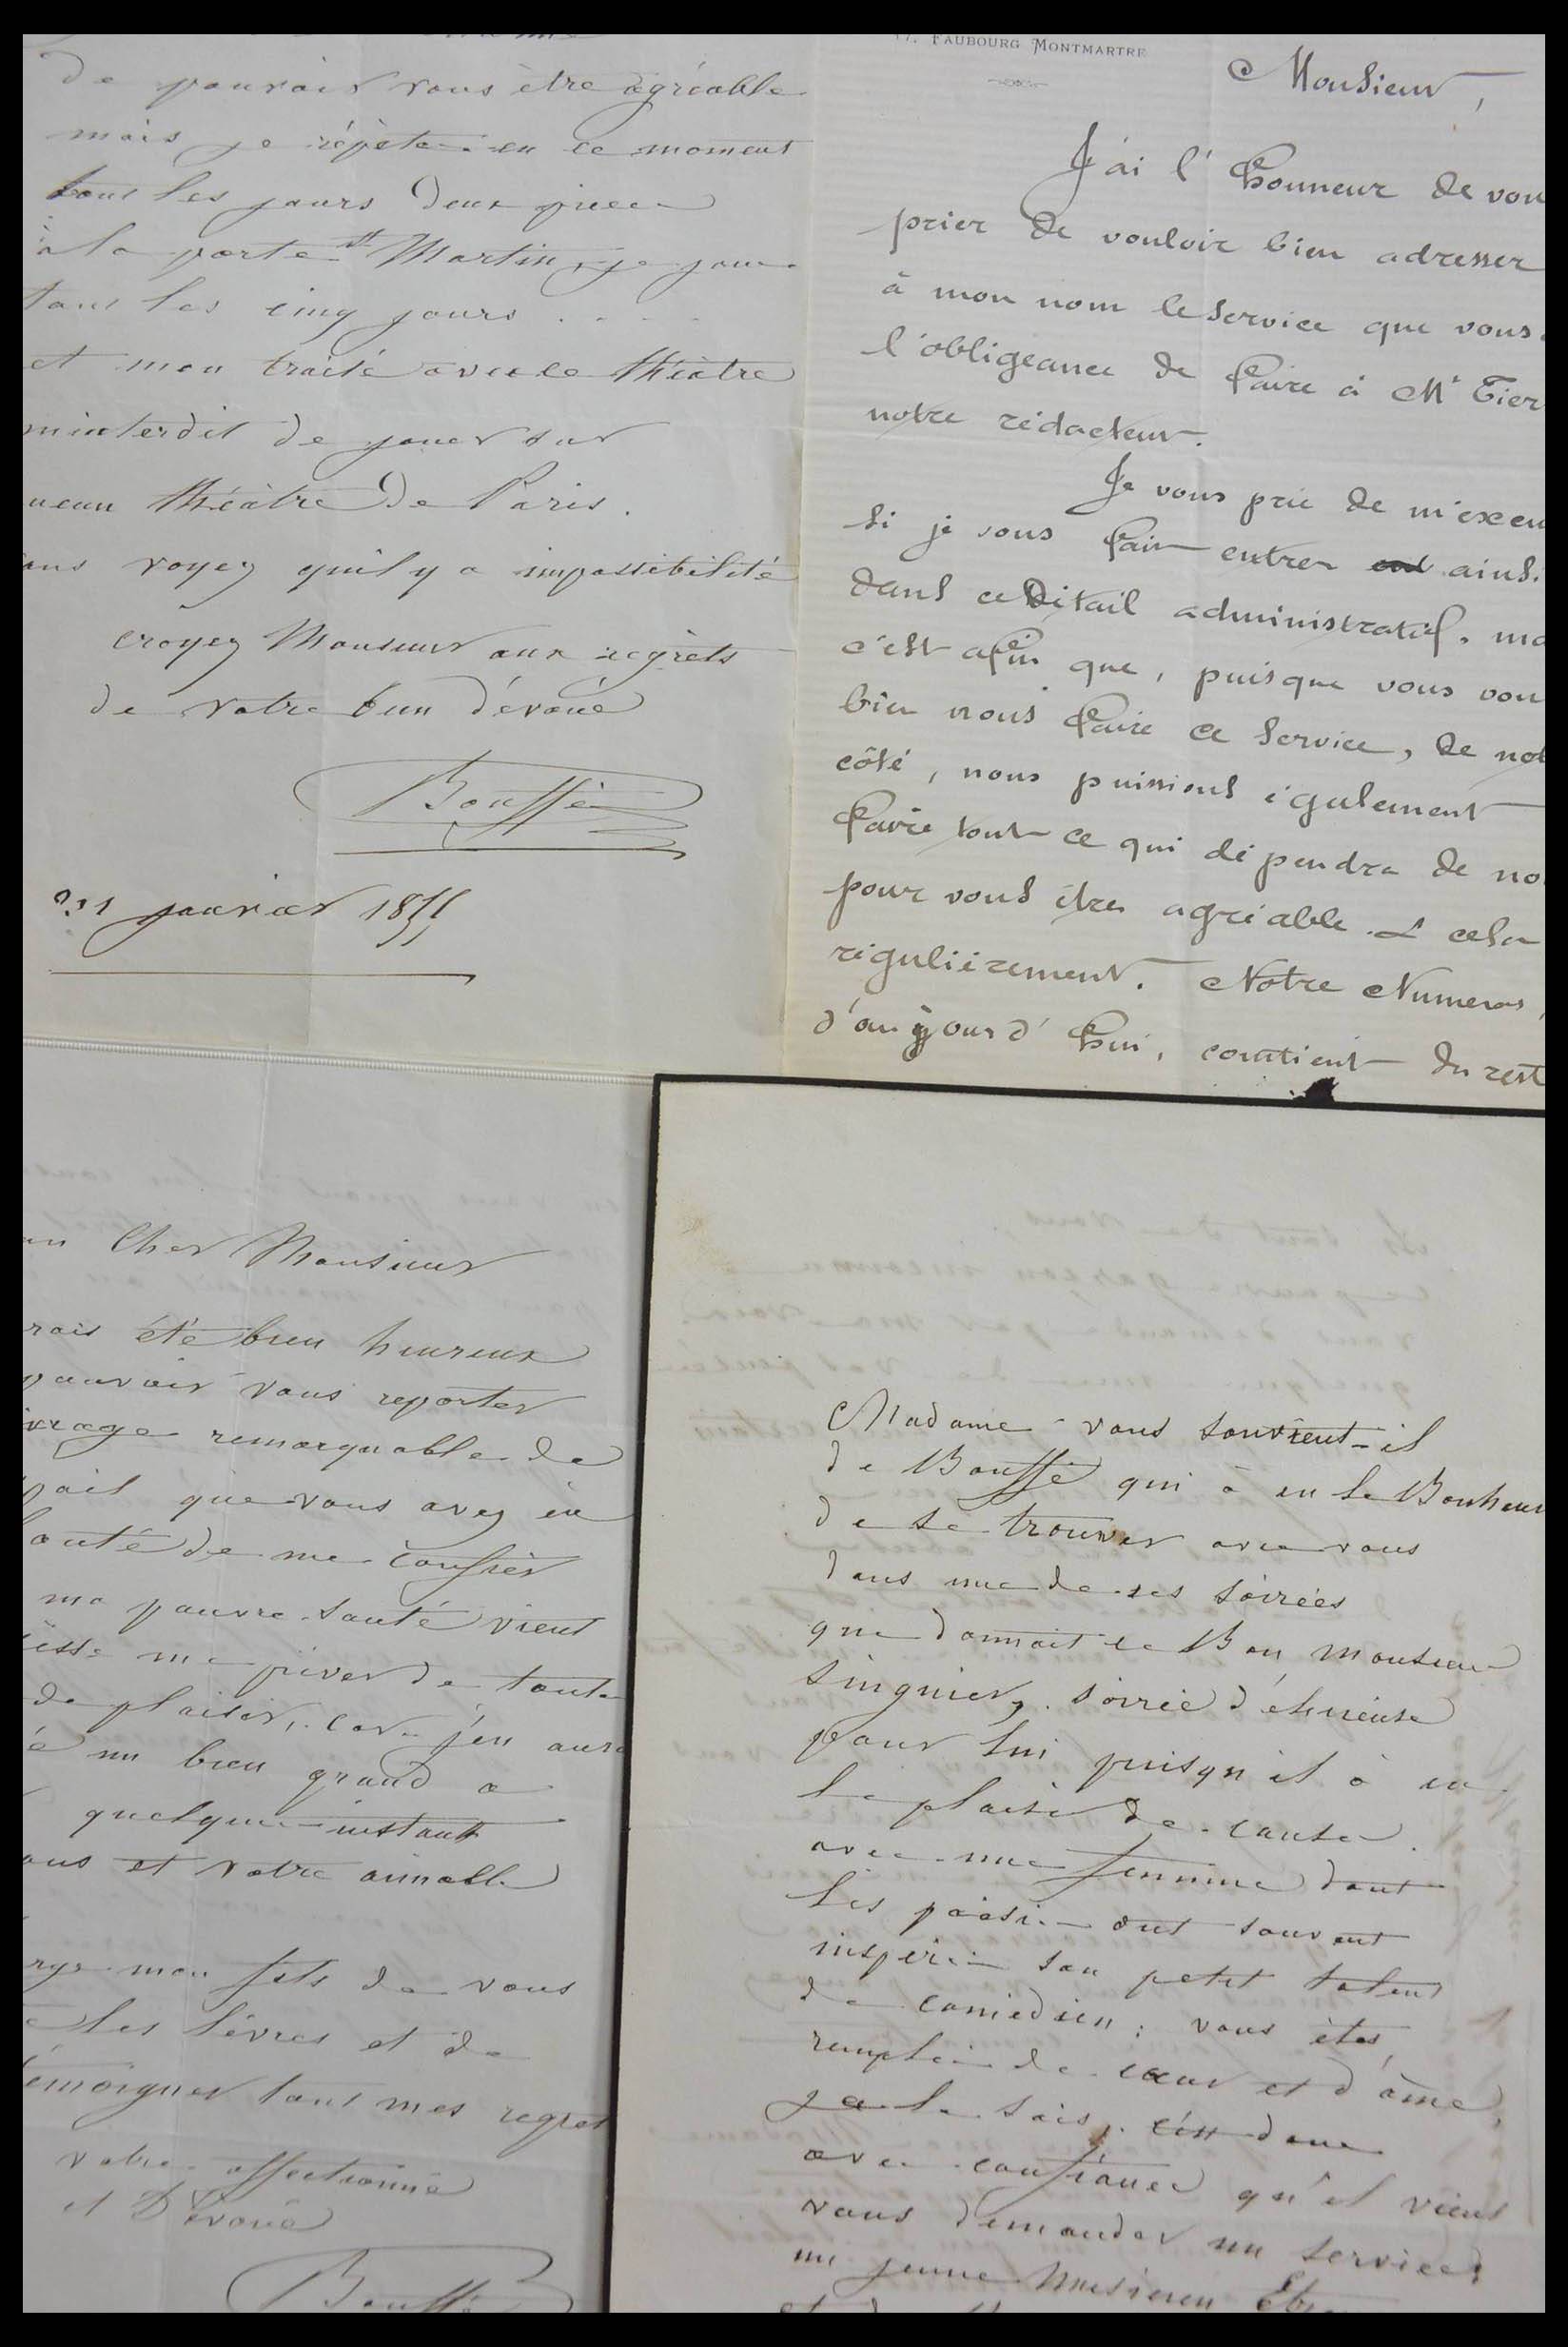 de pouvoir vous être agréable
mais je répète en ce moment
tous les jours deux pièces
à la porte St Martin, je joue
tous les cinq jours . . . .
et mon traité avec ce théâtre
m'interdit de jouer sur
théâtre de Paris.
voyez qu'il y a impossibilité
croyez Monsieur aux regrets
de votre bien dévoué
Bouffé
21 janvier 1855
Faubourg Montmartre
Monsieur,
J'ai l'honneur de vou
prier de vouloir bien adresser
à mon nom le service que vous
l'obligeance de faire à Mr Tier
notre rédacteur.
Je vous prie de m'excu
si je vous fais entrer ainsi
dans ce détail administratif. ma
c'est afin que, puisque vous vou
bien nous faire ce service, de not
côté, nous puissions également
faire tout ce qui dépendra de no
pour vous être agréable. & cela
régulièrement. Notre Numéro,
d'aujourd'hui, contient du rest
Cher Monsieur
rais été bien heureux
pouvoir vous reporter
remarquable de
que vous avez eu
de me confier
ma pauvre santé vient
me priver de toute
de plaisir, car j'en aura
é un bien grand a
quelque instant
ous et votre aimable
mon fils de vous
les livres et de
témoigner tous mes regret
votre affectionné
et Dévoué
Bouffé
Madame vous souvient-il
de Bouffé qui à eu le Bonheur
de se trouver avec vous
dans une de ses soirées
que donnait le Bon monsieur
Singnier, soirée d'éhureuse
pour lui puisqu'il à eu
le plaisir de causer
avec une femme dont
les poésies ont souvent
inspirée son petit talent
de comédien; vous êtes
remplie de cœur et d'âme,
je le sais, c'est donc
avec confiance qu'il vient
vous demander un service;
un jeune Musicien